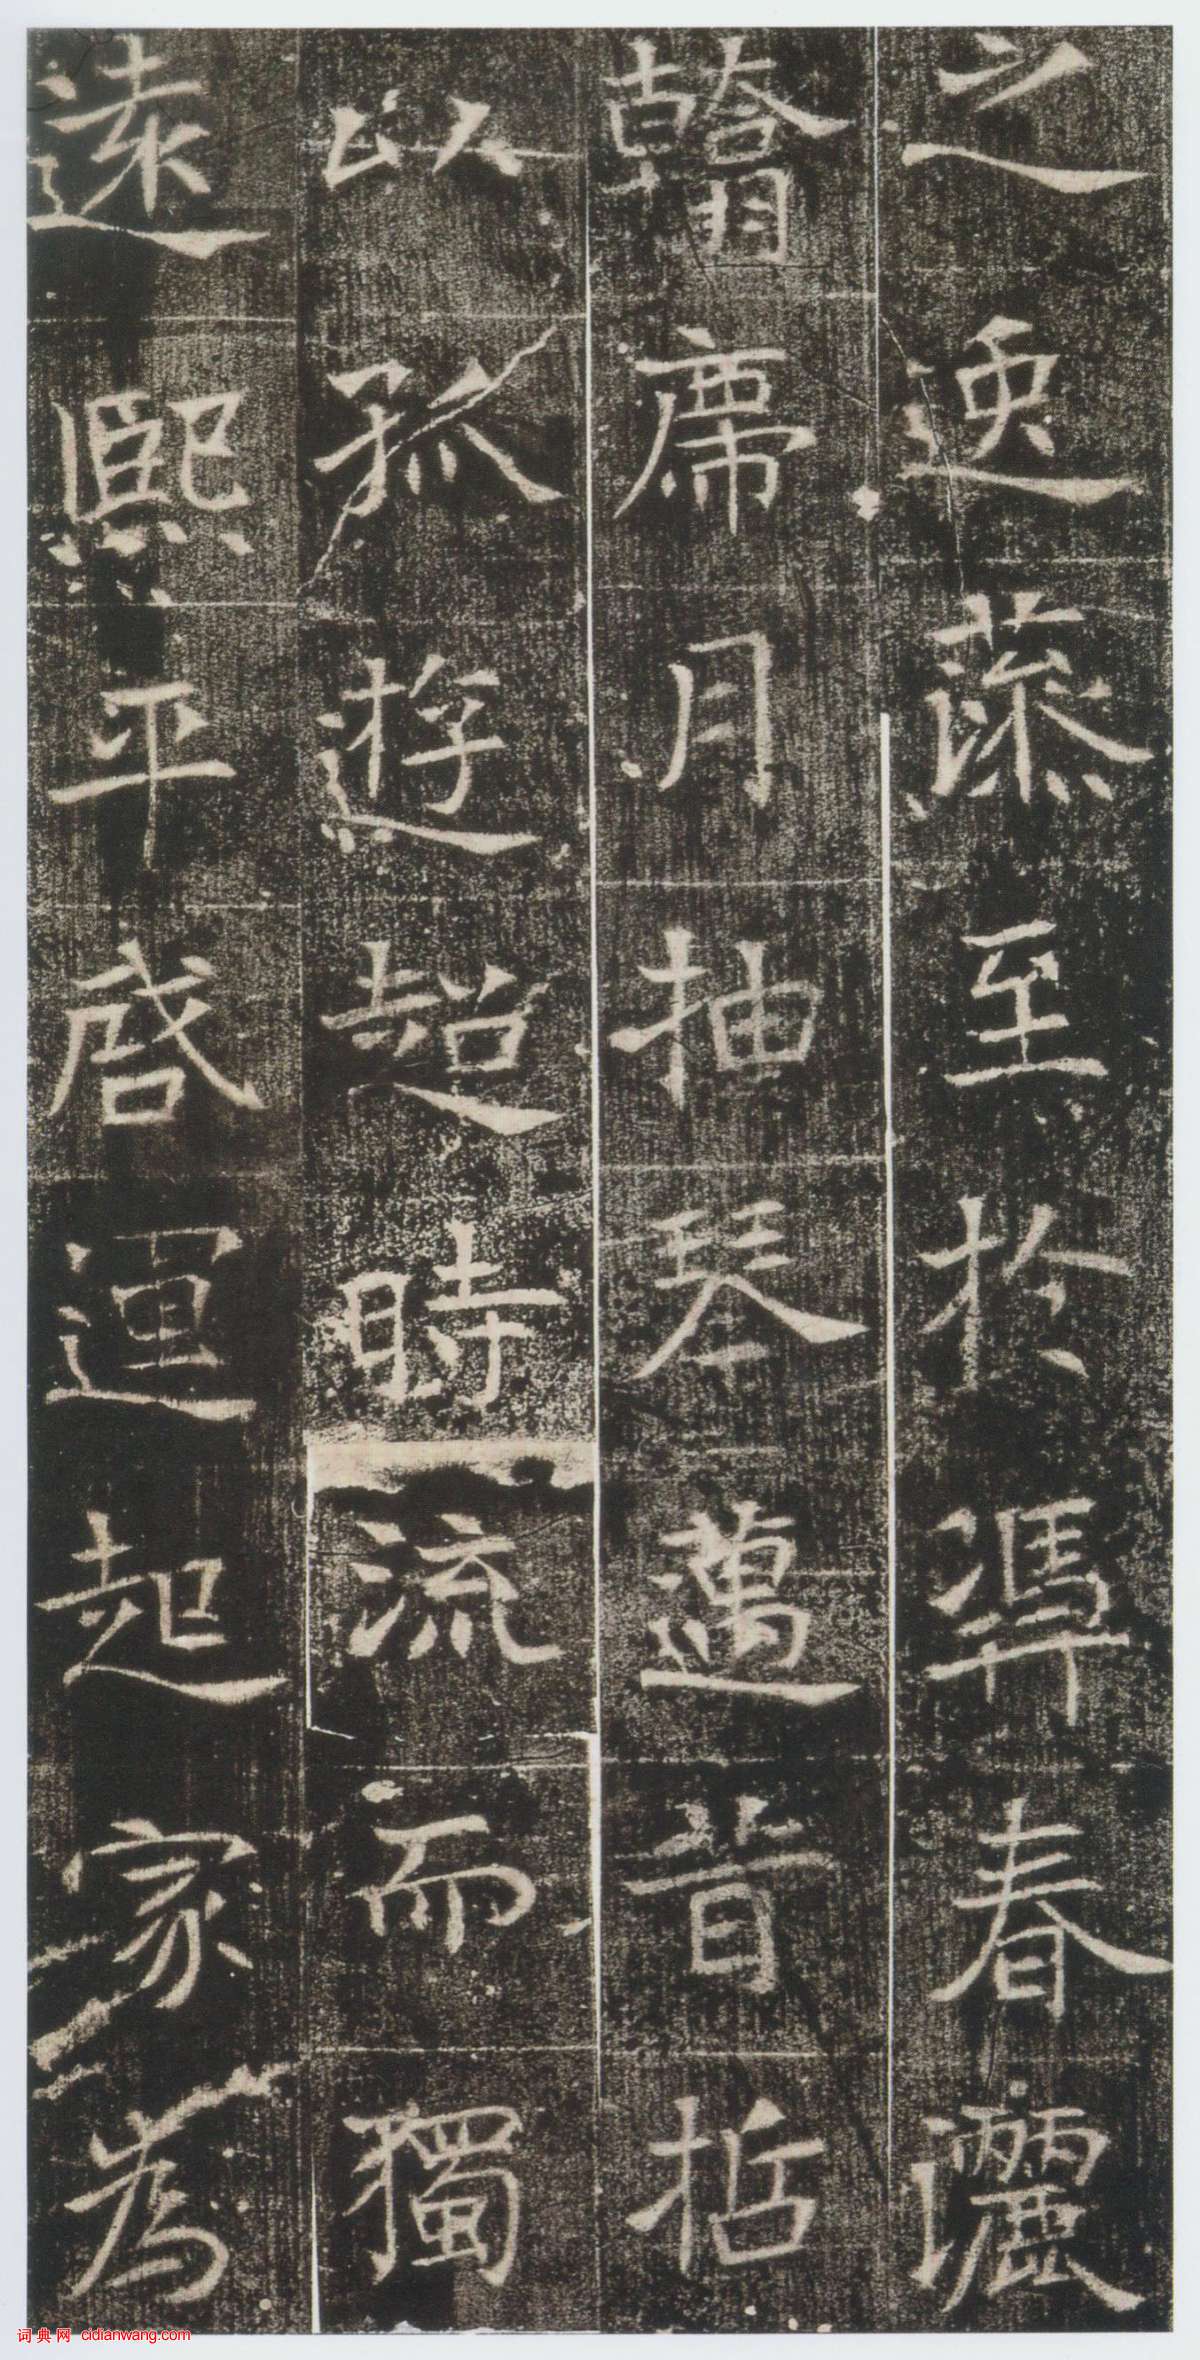 之逸藻至於馮春灑
翰席月抽琴邁昔哲
以孤遊超時流而獨
遠熙平啓運起家為
词典网 cidianwang.com